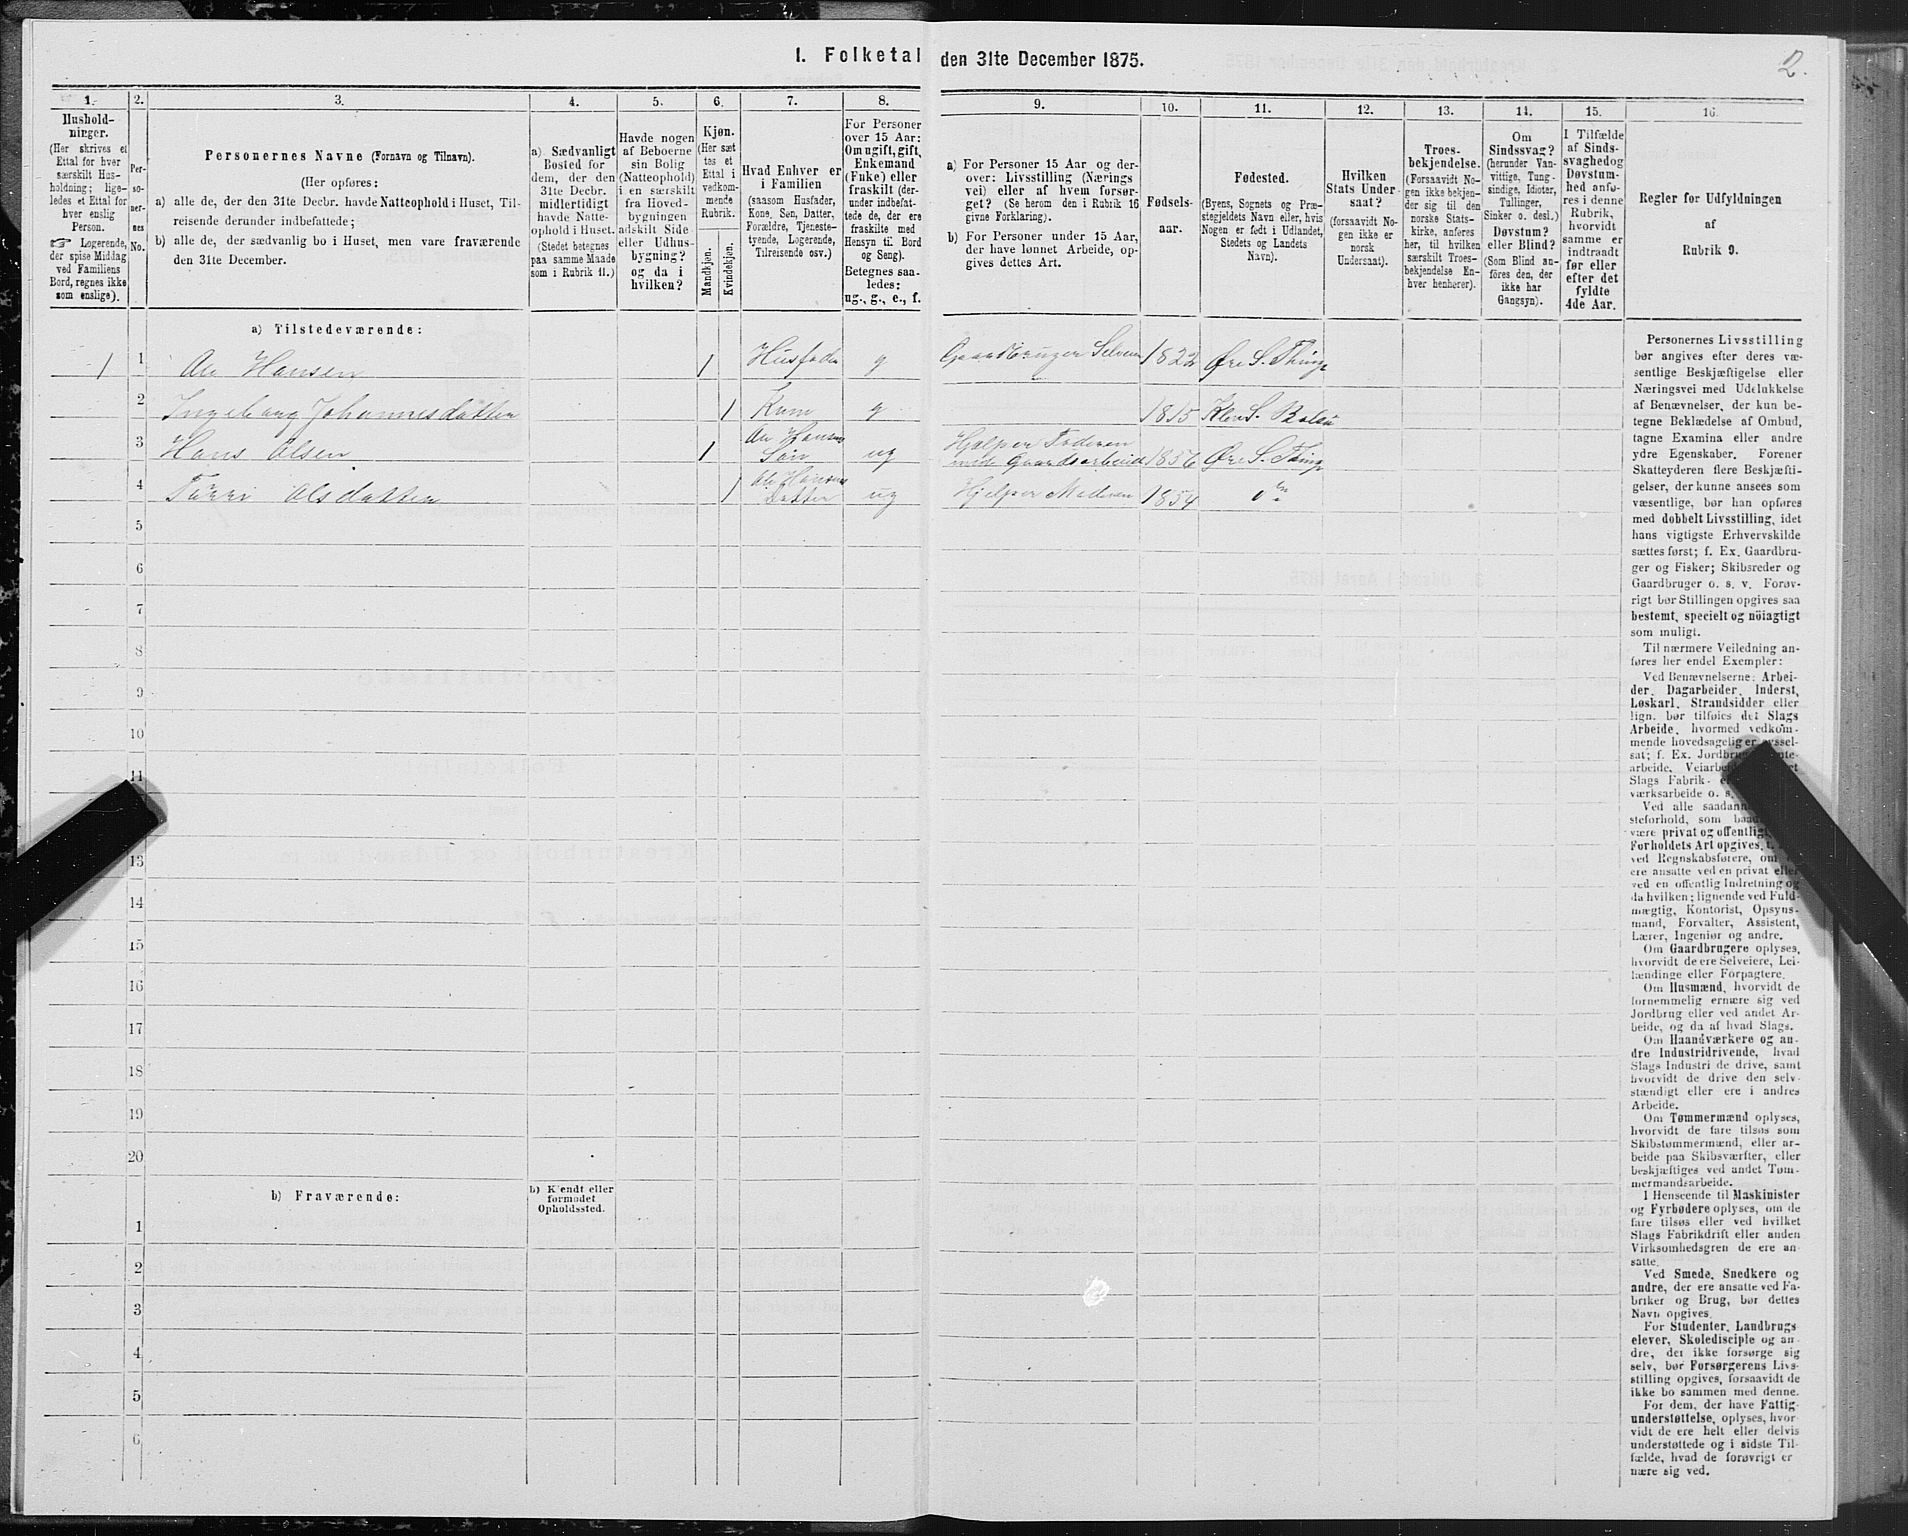 1. Folketal den 31te December 1875.
2.
1. 2. 3. 4. 5. 6. 7. 8. 9. 10. 11. 12. 13. 14. 15. 16
Hushold-
ninger.
(Her skrives et
Ettal for hver
særskilt Hus-
holdning; lige-
ledes et Ettal for
hver enslig
Person.
☞ Logerende,
der spise Middag
ved Familiens
Bord, regnes ikke
som enslige).
Per-
so-
ner-
nes
No.
Personernes Navne (Fornavn og Tilnavn).
(Her opføres:
a) alle de, der den 31te Decbr. havde Natteophold i Huset, Til-
reisende derunder indbefattede;
b) alle de, der sædvanlig bo i Huset, men vare fraværende
den 31te December.
a) Sædvanligt
Bosted for
dem, der den
31te Decbr.
midlertidigt
havde Natte-
ophold i Huset.
(Stedet betegnes
paa samme Maade
som i Rubrik 11.)
Havde nogen
af Beboerne
sin Bolig
(Natteophold)
i en særskilt
fra Hoved-
bygningen
adskilt Side-
eller Udhus-
bygning?
og da i
hvilken?
Kjøn.
(Her sæt
tes et
Ettal i
vedkom-
mende
Rubrik.
Mandkjøn.
Kvindekjøn.
Hvad Enhver er
i Familien
(saasom Husfader,
Kone, Søn, Datter,
Forældre, Tjeneste-
tyende, Logerende,
Tilreisende osv.)
For Personer
over 15 Aar:
Om ugift, gift,
Enkemand
(Enke) eller
fraskilt (der-
under indbefat-
tede de, der ere
fraskilte med
Hensyn til Bord
og Seng).
Betegnes saa-
ledes:
ug., g., e., f.
a) For Personer 15 Aar og der-
over: Livsstilling (Nærings
vei) eller af hvem forsør-
get? (Se herom den i Rubrik 16
givne Forklaring).
b) For Personer under 15 Aar,
der have lønnet Arbeide, op-
gives dettes Art.
Fødsels-
aar.
Fødested.
(Byens, Sognets og Præ-
stegjeldets Navn eller, hvis
Nogen er født i Udlandet,
Stedets og Landets
Navn).
Hvilken
Stats Under-
saat?
(forsaavidt No-
gen ikke er
norsk
Undersaat).
Troes-
bekjendelse.
(Forsaavidt No-
gen ikke bekjen-
der sig til den
norske Stats-
kirke, anføres
her, til hvilken
særskilt Troes-
bekjendelse En-
hver henhører).
Om
Sindssvag?
(herunder Van-
vittige, Tung-
sindige, Idioter,
Tullinger,
Sinker o. desl.)
Døvstum?
eller Blind?
(Som Blind an-
føres den, der
ikke har
Gangsyn).
I Tilfælde
af Sinds-
svaghed og
Døvstum-
hed anfø-
res i denne
Rubrik,
hvorvidt
samme er
indtraadt
før eller
efter det
fyldte
4de Aar.
Regler for Udfyldningen
af
Rubrik 9.
a) Tilstedeværende:
1 1 Hansen 1 Husfader g Gaardbruger Selveier 1822 Øre S. Thing
2 Ingeborg Johannesdatter 1 Kone g 1815 S.
3 Hans Olsen 1 Hansens Søn ug Hjelper Faderen med Gaardsarbeide 1856 Øre S. Thing
4 Olsdatter 1 Hansens Datter ug Hjelper Moderen 1854
5
6
7
8
9
10
11
13
14
15
16
17
18
19
20
b) Fraværende:
b) Kjendt eller
formodet
Opholdssted.
1
2
3
4
5
6
Personernes Livsstilling
bør angives efter deres væ-
sentlige Beskjæftigelse eller
Næringsvei med Udelukkelse
af Benævnelser, der kun be-
tegne Beklædelse af Ombud,
tagne Examina eller andre
ydre Egenskaber. Forener
Skatteyderen flere Beskjæfti-
gelser, der kunne ansees som
væsentlige, bør han opføres
med dobbelt Livsstilling, idet
hans vigtigste Erhvervskilde
sættes først; f. Ex. Gaardbru-
ger og Fisker; Skibsreder og
Gaardbruger o. s. v. Forøv-
rigt bør Stillingen opgives saa
bestemt, specielt og nöiagtigt
som muligt.
Til nærmere Veiledning an-
føres her endel Exempler:
Ved Benævnelserne: Arbei-
der, Dagarbeider, Inderst,
Løskarl, Strandsidder eller
lign. bør tilføies det Slags
Arbeide, hvormed vedkom-
mende hovedsagelig er syssel-
sat; f. Ex.
arbeide,
Slags Fabrik-
værksarbeide o. s.
Ved alle
steforhold, som
være privat og offentlig,
Forholdets Art opgives,
ved Regnskabsførere, om
ere ansatte ved en privat eller
ved en offentlig Indretning og
da hvilken; lignende ved Fuld-
mægtig, Kontorist, Opsyns-
mand, Forvalter, Assistent,
Lærer, Ingeniør og andre.
Om Gaardbrugere oplyses,
hvorvidt de ere Selveiere, Lei-
lændinge eller Forpagtere.
Om Husmænd, hvorvidt de
fornemmelig ernære sig ved
Jordbrug eller ved andet Ar-
beide, og da af hvad Slags.
Om Haandværkere og an-
dre Industridrivende, hvad
Slags Industri de drive, samt
hvorvidt de drive den selv-
stændigt eller ere i andres
Arbeide.
Om Tømmermænd oplyses,
hvorvidt de fare tilsøs som
Skibstømmermænd, eller ar-
beide paa Skibsværfter, eller
beskjæftiges ved andet Tøm-
mermandsarbeide.
I Henseende til Maskinister
og Fyrbødere oplyses, om de
fare tilsøs eller ved hvilket
Slags Fabrikdrift eller anden
Virksomhedsgren de ere an-
satte.
Ved Smede, Snedkere og
andre, der ere ansatte ved Fa-
briker og Brug, bør dettes
Navn opgives.
For Studenter, Landbrugs
elever, Skoledisciple og an-
dre, der ikke forsørge sig
selv, bør Forsørgerens Livs-
stilling opgives, forsaavidt de
ikke bo sammen med denne.
For dem, der have Fattig-
understøttelse, oplyses, hvor-
vidt de ere helt eller delvis
understøttede og i sidste Til-
fælde, hvad de forøvrigt er
nære sig ved.